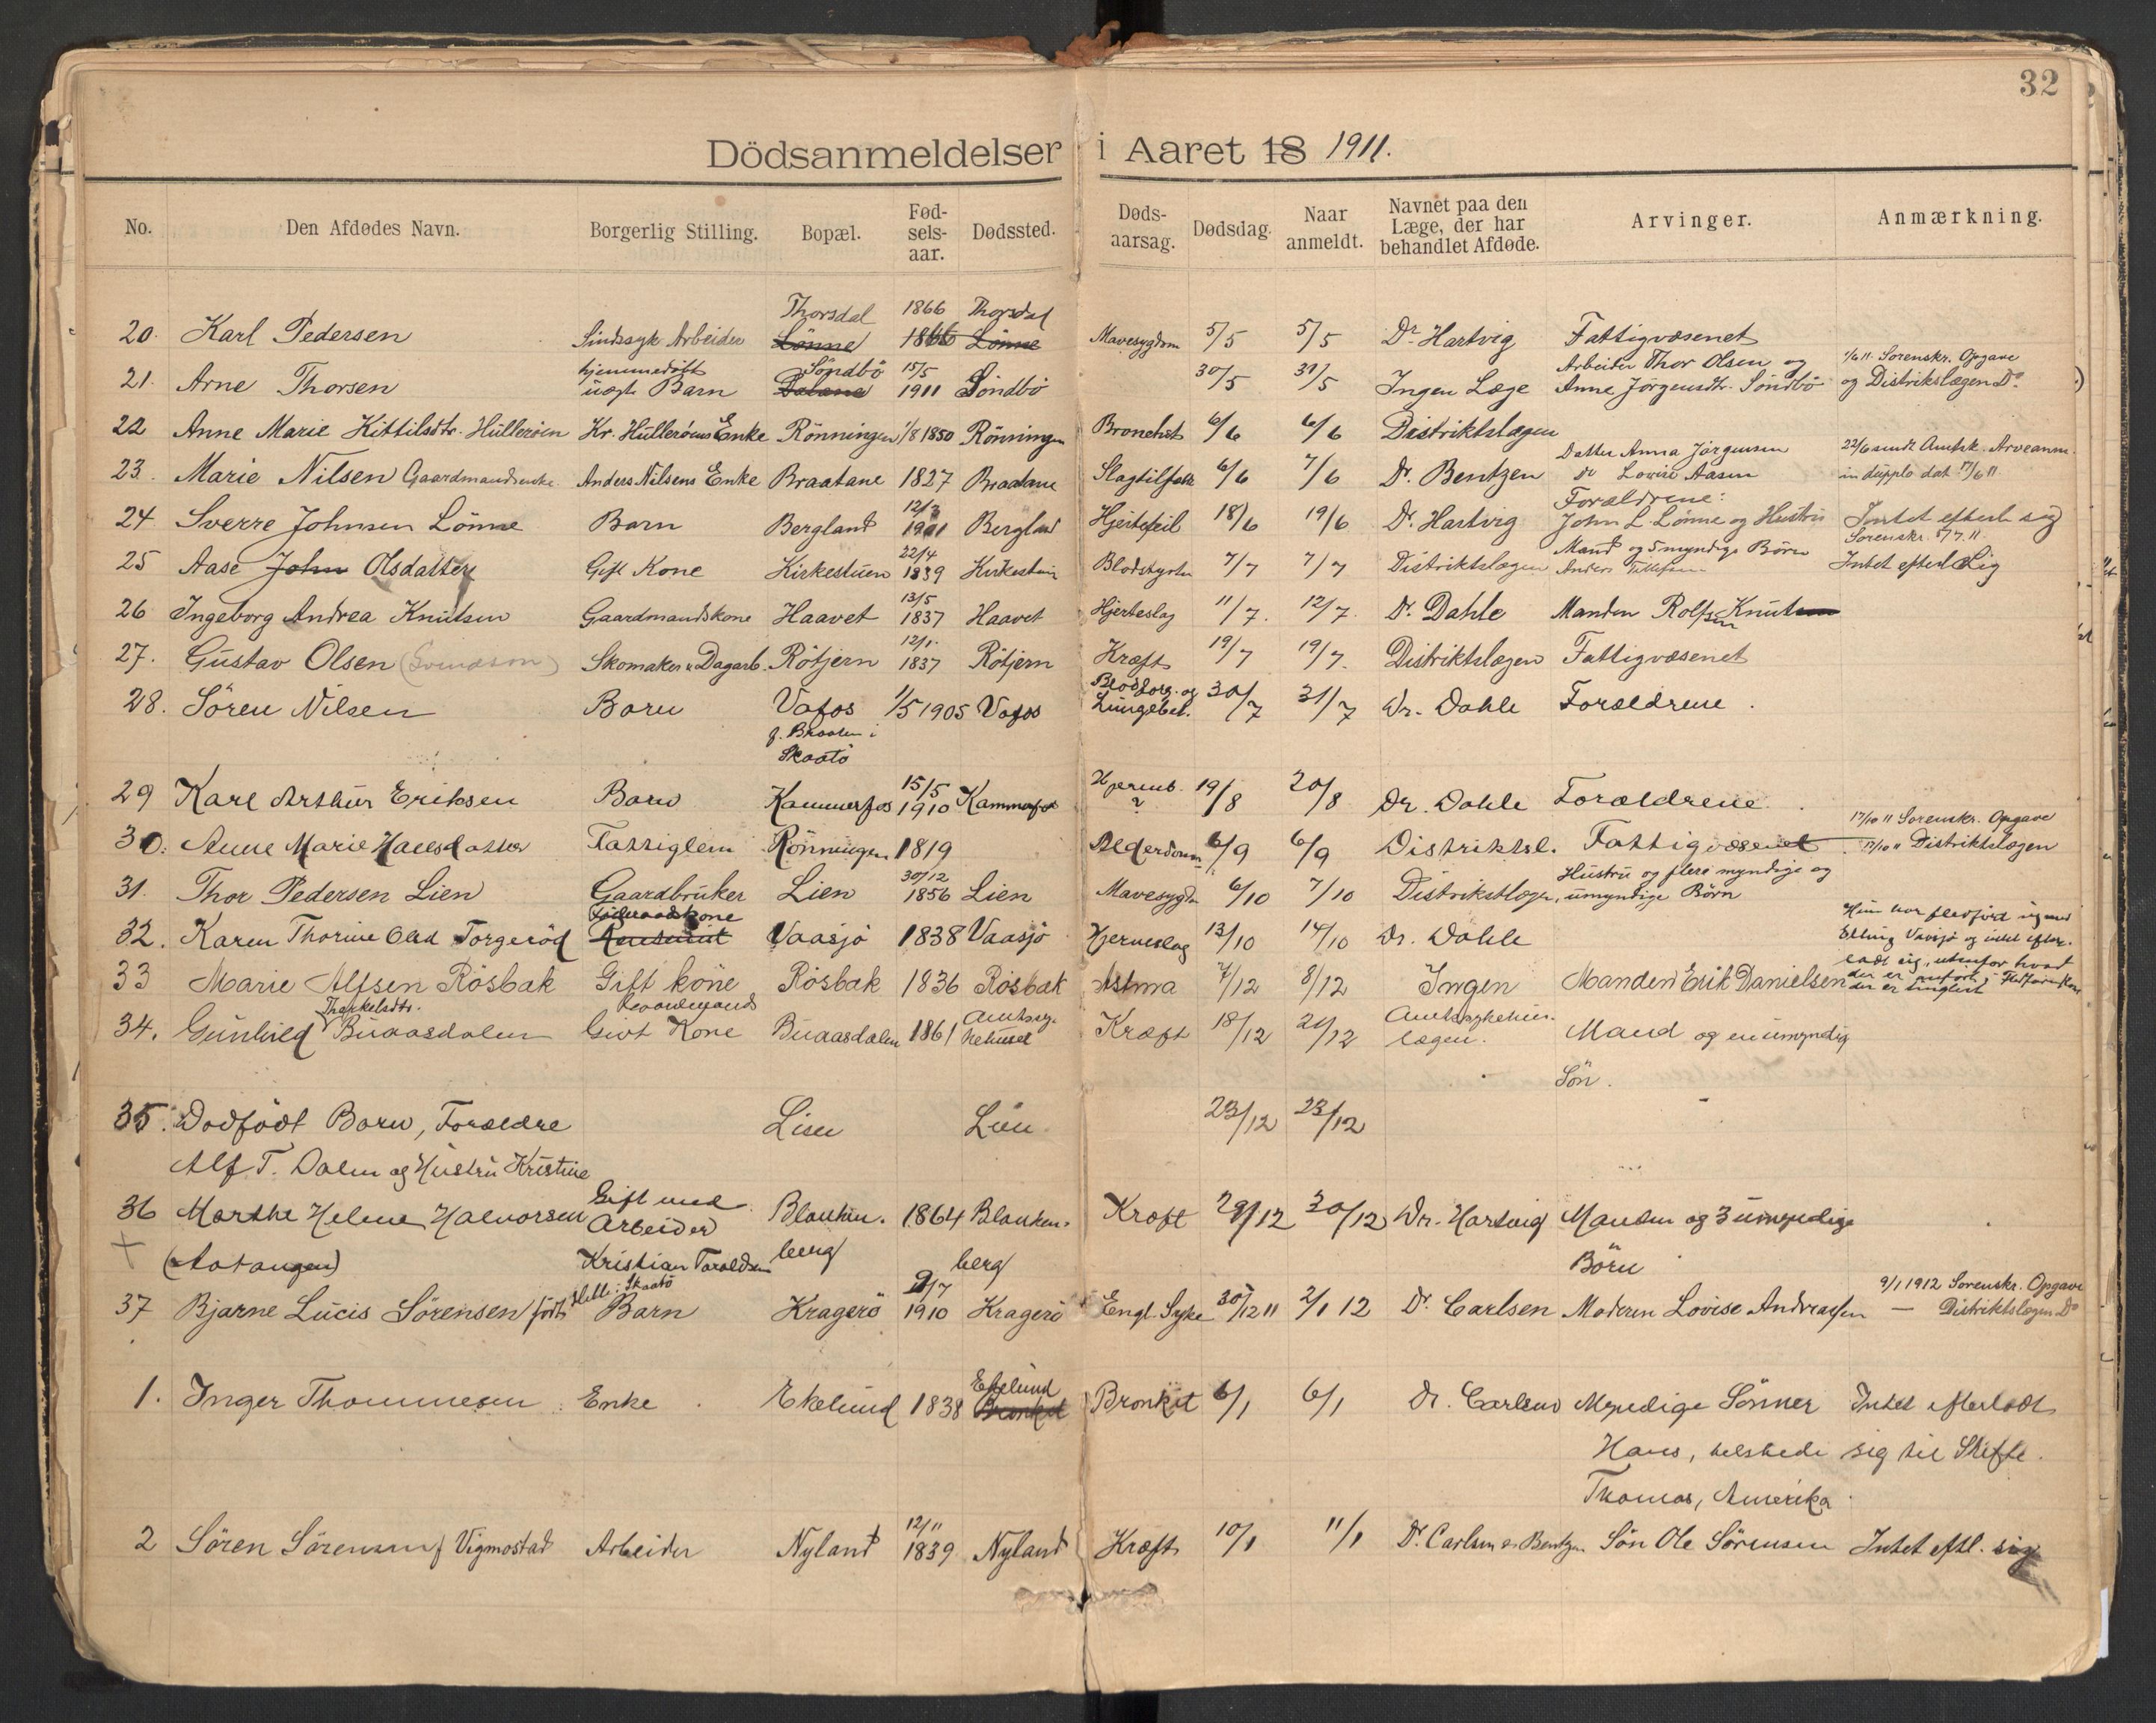 32
Dödsanmeldelser i Aaret 18 1911.
No. Den Afdødes Navn. Borgerlig Stilling. Bopæl. Fød-sels-aar. Dødssted. Døds-aarsag. Dødsdag. Naar anmeldt. Navnet paa den Læge, der har behandlet Afdøde. Arvinger. Anmærkning.
Thorsdal 1866 Thorsdal
20. Karl Pedersen Sindssyk Arbeider Lönne 1866 Lönne Mavesygdom 5/5 5/5 Dr Hartvig Fattigvæsenet
hjemmedöbt Söndbö 15/5 Arbeider Thor Olsen og 1/6 11. Sorenskr. Opgave
21. Arne Thorsen uægte Barn 1911 Söndbö 30/5 31/5 Ingen Læge Anne Jörgensdtr. Söndbö og Distrikslægen Do
22 Anne Marie Kittilsdtr. Hülleröen Kr. Hülleröens Enke Rönningen 1/8 1850 Rönningen Bronchit 6/6 6/6 Distriktslægen
Datter Anna Jörgensen 22/6 sendt Amtsk. Arveanm.
23. Marie Nilsen Gaardmandsenke Anders Nilsens Enke Braatane 1827 Braatane Slagtilfæld 6/6 7/6 Dr. Bentzen Do Lovise Aasen in duplo dat 17/6 11
12/3 Forældrene:
24 Sverre Johnsen Lönne Barn Bergland 1911 Bergland Hjertefeil 18/6 19/6 Dr. Hartvig John L. Lönne og Hustru Intet efterl. sig
22/4 Mand og 5 myndige Börn Sorenskr. 5/7. 11.
25 Aase John Olsdatter Gift Kone Kirkestuen 1839 Kirkestuen Blodstyrtn 7/7 7/7 Distriktslægen Anders Tellefsen Intet efterl Sig
13/5
26 Ingeborg Andrea Knutsen Gaardmandskone Haavet 1837 Haavet Hjerteslag 11/7. 12/7. Dr. Dahle Manden Rolfsen Knutsen
12/1.
27. Gustav Olsen (Svendson) Skomaker u Dagarb. Rötjern 1837 Rötjern Kræft 19/7 19/7. Distriktslægen Fattigvæsenet
Blodforg. og
28. Sören Nilsen Barn Vafos 1/5 1905 Vafos Lungebet. 30/7 31/7 Dr. Dahle Forældrene.
f. Skaaten i
Skaatö
15/5
29 Karl Arthur Eriksen Barn Kammerfos 1910 Kammerfos Hjerneb. ? 19/8 20/8 Dr. Dahle Forældrene.
17/10 11 Sorenskr. Opgave
30. Anne Marie Hansdatter Fattiglem Rönningen 1819 Alderdom 6/9 6/9 Distriktsl. Fattigvæsenet. 17/10 11 Distriktslægen
30/12 Hustru og flere myndige og
31. Thor Pedersen Lien Gaardbruker Lien 1856 Lien Mavesygdn 6/10 7/10 Distriktslægen, umyndige Börn
Föderaadskone Hun var fledförd ug med
32. Karen Thorine Olsd Torgeröd Vaasjö 1838 Vaasjö Hjerneslag 13/10 14/10 Dr. Dahle Elling Vavsjö og intet efter-
ladt sig, utenfor hvad
33 Marie Alfsen Rösbak Gift kone Rösbak 1836 Rösbak Astma 7/12 8/12 Ingen Manden Erik Danielsen der er anfört i
der er tinglest
Thorkelsdtr. Gaardmands Amtssy- Amtssykehus-
34. Gunhild Buaasdalen Givt Kone Buaasdalen 1861 kehuset Kræft 18/12 20/12 lægen. Mand og en umyndig
Sön.
35. Dödfödt Barn, Forældre Lien Lien 23/12 23/12
Alf T. Dalen og Hustru Kristine
Gift med
36 Marthe Helene Halvorsen Arbeider Blanken. 1864 Blanken. Kræft 29/12 30/12 Dr. Hartvig Manden og 3 umyndige
(Aatangen) Kristian Taraldsen berg berg Börn
Helle i Skaatö 9/7 9/1 1912 Sorenskr. Opgave
37 Bjarne Lucis Sörensen född Barn Kragerö 1910 Kragerö Engl. Syke 30/12 11 2/1 12 Dr. Carlsen Moderen Lovise Andreassen — Distriktslægen Do
Ekelund
1. Inger Thommesen Enke Ekelund 1838 Bronkit Bronkit 6/1 6/1 Dr. Carlsen Myndige Sönner Intet efterladt
Hans, sig til Skifte.
Thomas, Amerika
12/11
2 Sören Sörensen f Vigmostad Arbeider Nyland 1839 Nyland Kræft 10/1 11/1 Dr Carlsen & Bentzen Sön Ole Sörensen Intet eftl. sig